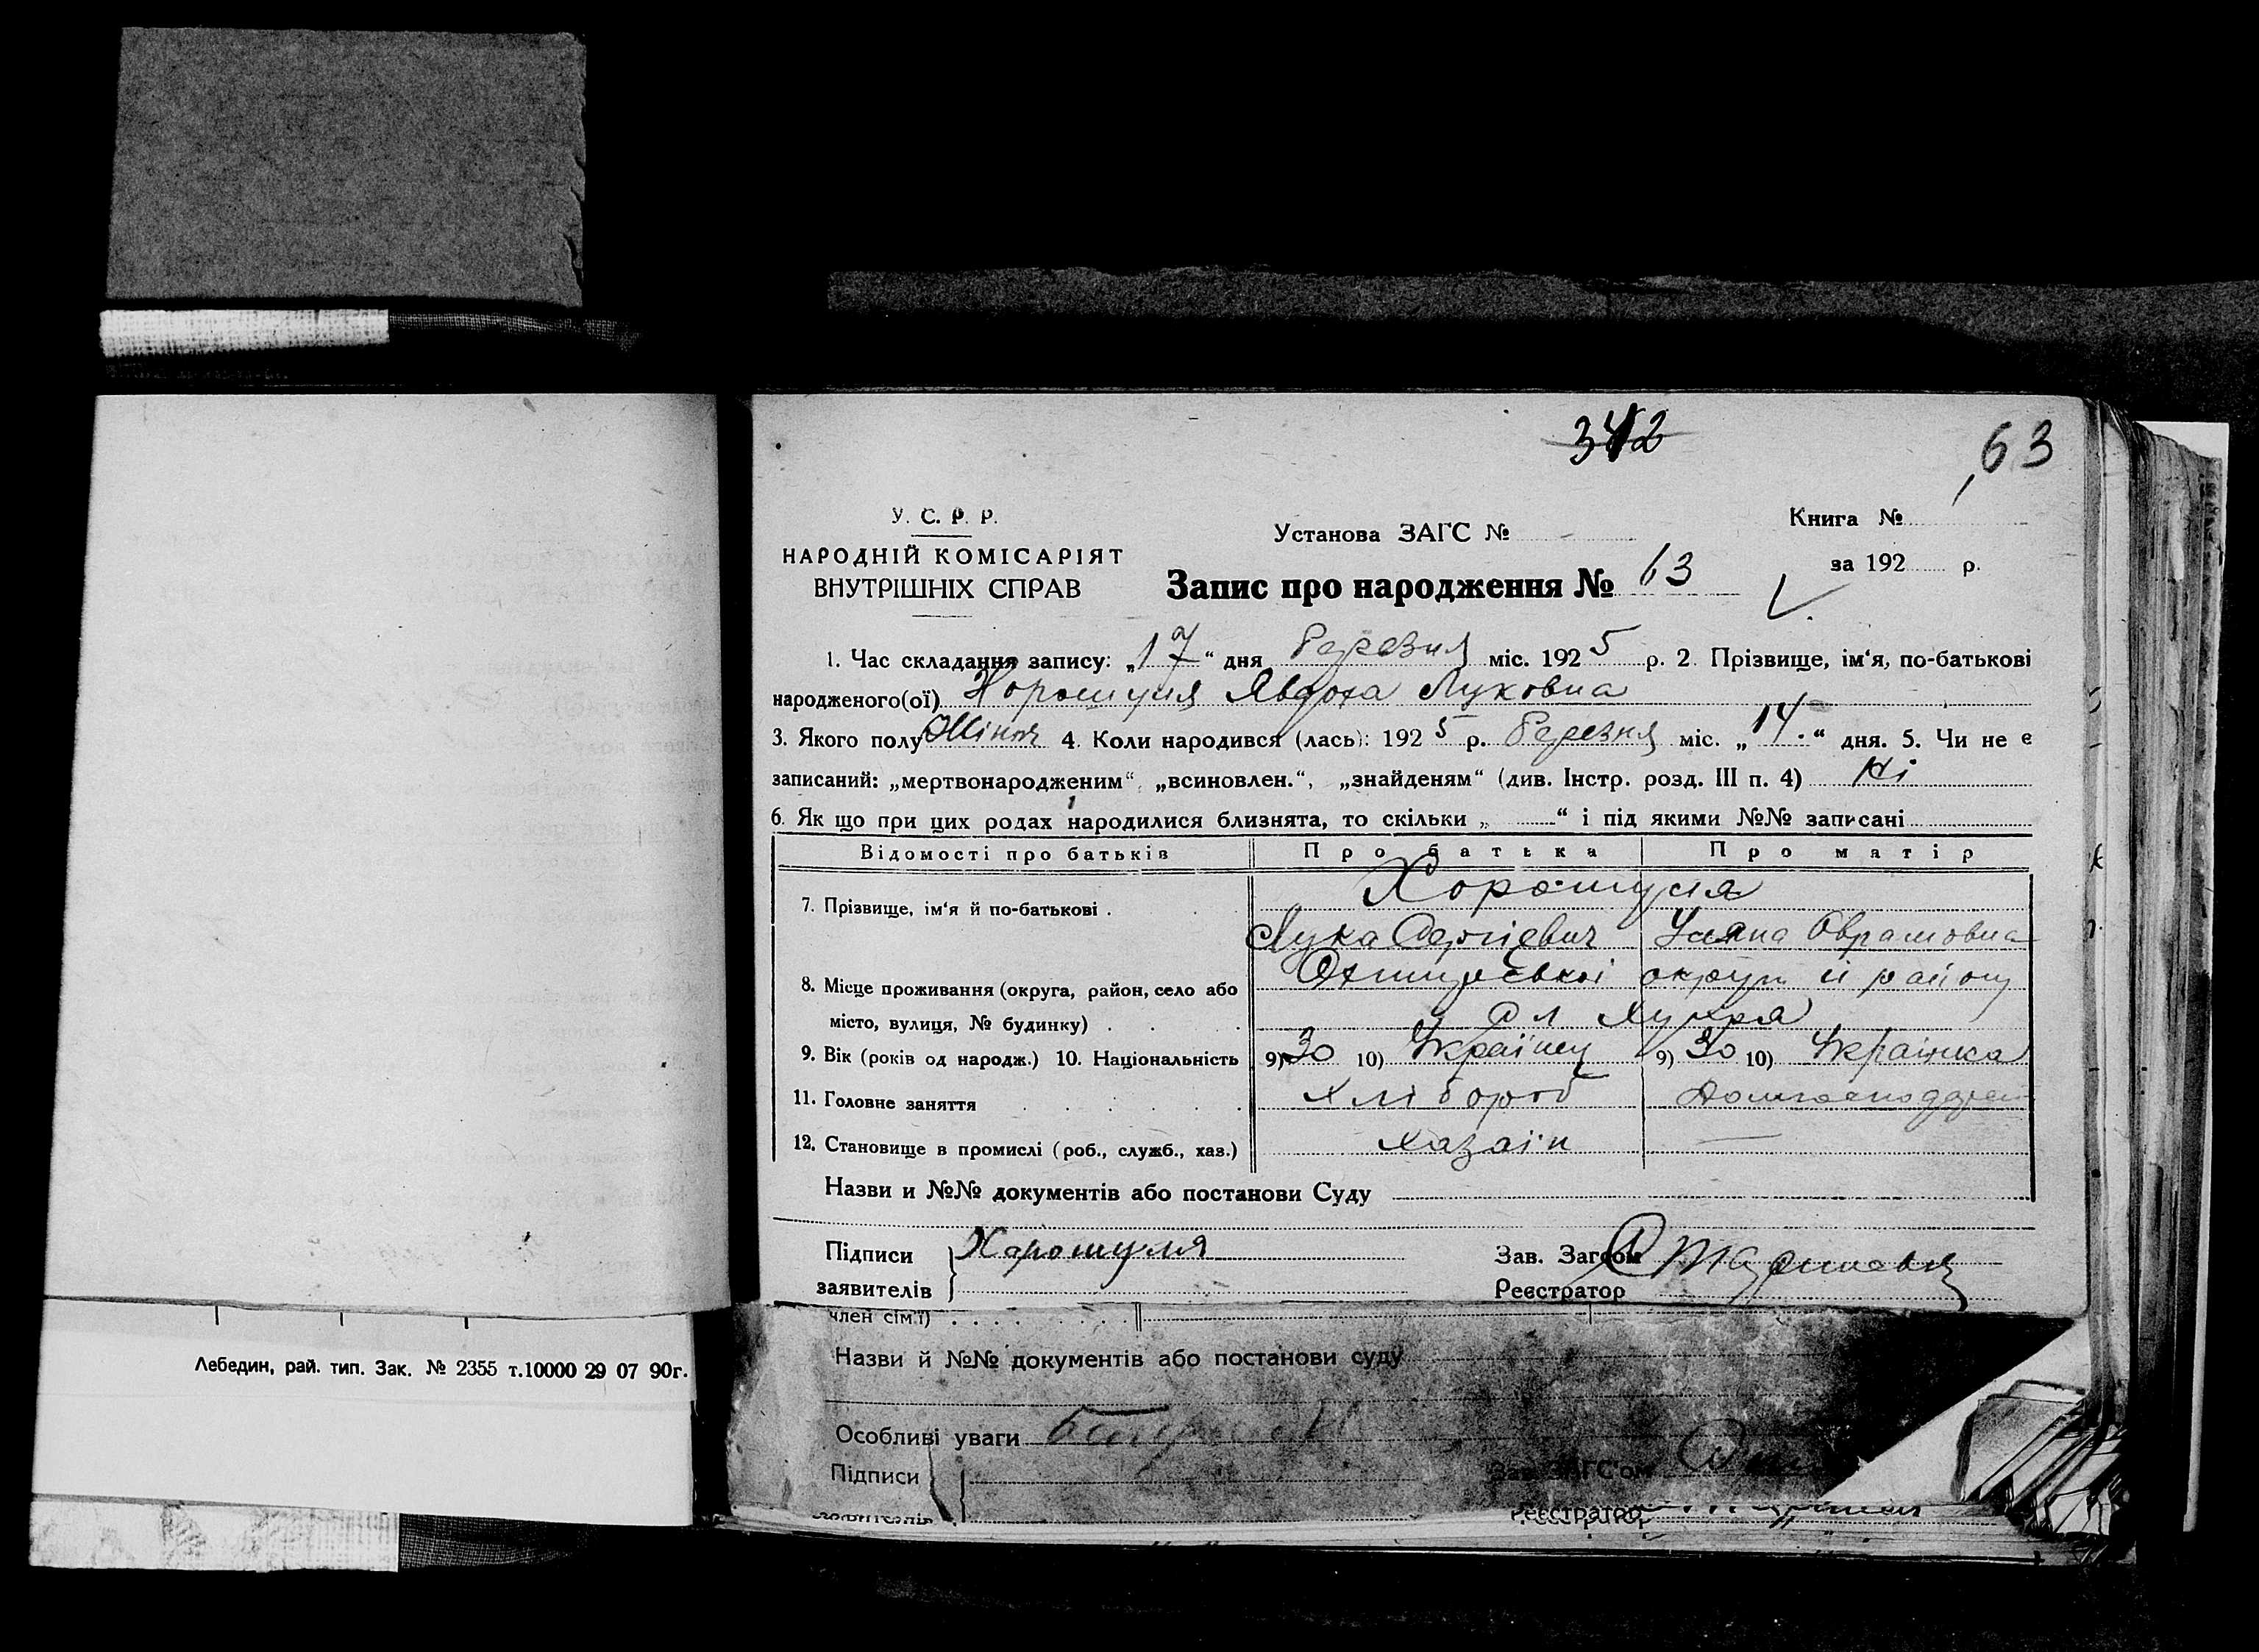 342
63
У. С. Р. Р.
НАРОДНІЙ КОМІСАРІЯТ
ВНУТРІШНІХ СПРАВ
Установа ЗАГС №
Книга №
за 192 р.
Запис про народження № 63
1. Час складання запису: „17“ дня березня міс. 1925 р. 2. Прізвище, ім‘я, по-батькові
народженого(ої) Хорошуня Явдоха Луковна
3. Якого полу Жіноч 4. Коли народився (лась): 1925 р. березня міс. „14.“ дня. 5. Чи не є
записаний: „мертвонародженим“, „всиновлен.“, „знайденям“ (див. Інстр. розд. III п. 4) Ні
6. Як що при цих родах народилися близнята, то скільки „ “ і під якими №№ записані
Відомості про батьків Про батька Про матір
7. Прізвище, ім‘я й по-батькові . Хорошуня
Лука Сергієвич Уляна Оврамовна
8. Місце проживання (округа, район, село або Охтирської округи й району
місто, вулиця, № будинку) . . . Сл Хухра
9. Вік (років од народж.) 10. Національність 9) 30 10) Українец 9) 30 10) Українка
11. Головне заняття Хлібороб
12. Становище в промислі (роб., служб., хаз.) Хазаїн —
Назви и №№ документів або постанови Суду
Підписи заявителів Харошуля
Зав. Загсом
Реєстратор
член сім'ї)
Лебедин, рай. тип. Зак. № 2355 т.10000 29 07 90г.
Назви й №№ документів або постанови суду
Особливі уваги
Підписи
Зав. ЗАГС'ом
Реєстратор